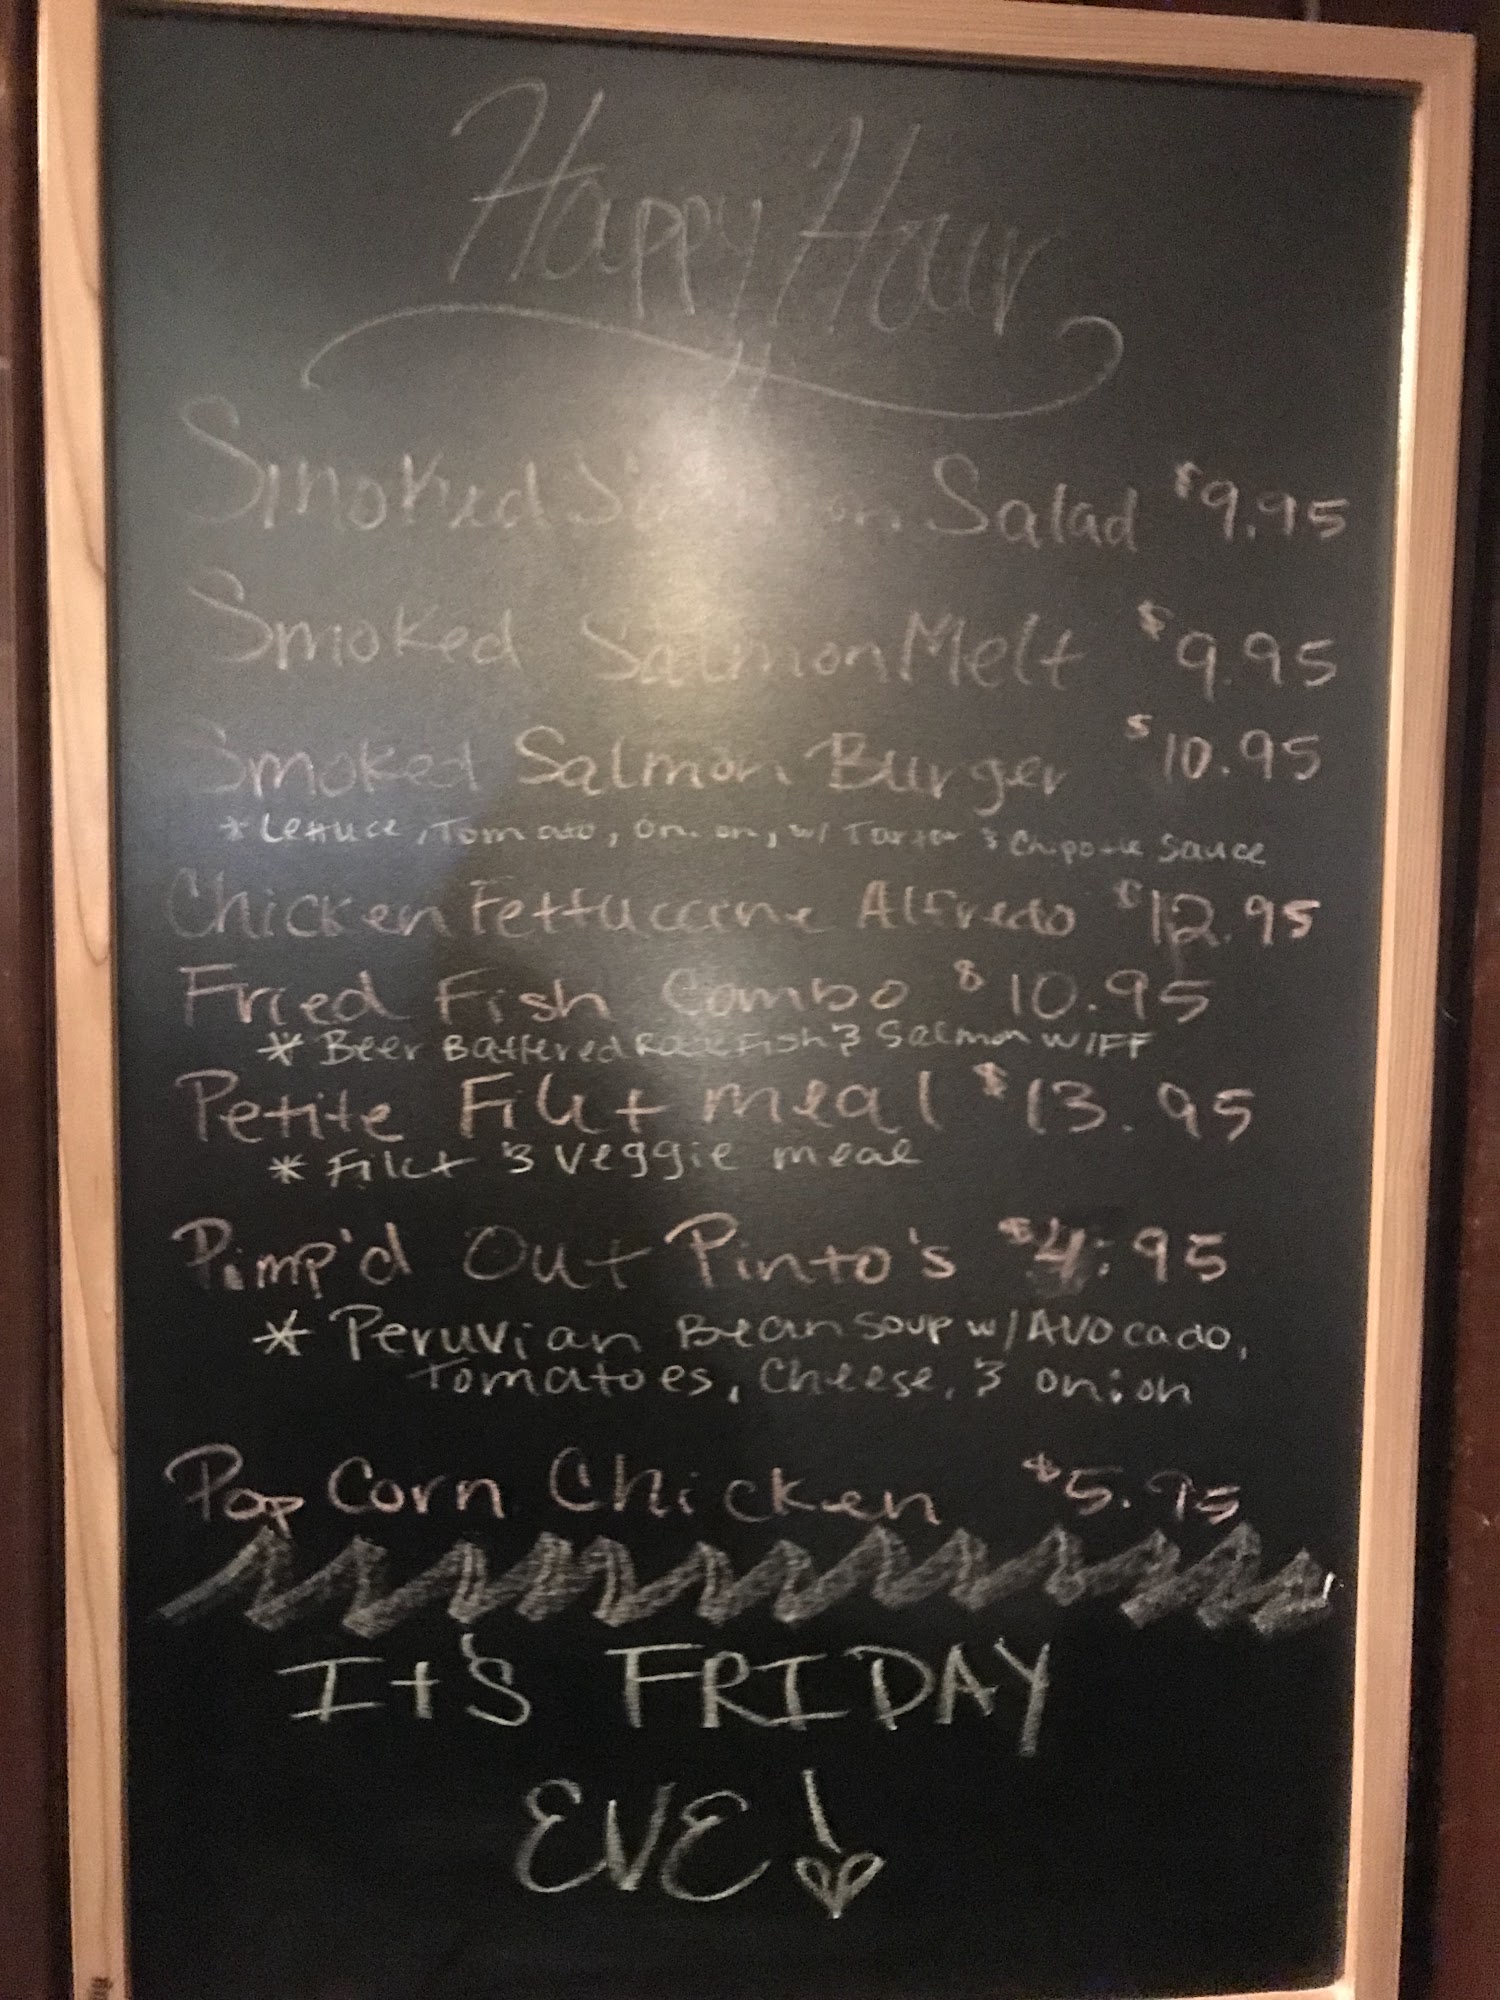 Happy Hour
Smoked Salmon Salad $9.95
Smoked Salmon Melt $9.95
Smoked Salmon Burger $10.95
* Lettuce, Tomato, Onion, w/ Tartar & Chipotle Sauce
Chicken Fettuccine Alfredo $12.95
Fried Fish Combo $10.95
* Beer Battered Fish & Salmon W/FF
Petite Filet meal $13.95
* Filet & Veggie meal
Pimp'd Out Pinto's $4.95
* Peruvian Bean soup w/ Avocado,
Tomatoes, Cheese, & onion
Pop Corn Chicken $5.95
It's FRIDAY
EVE!